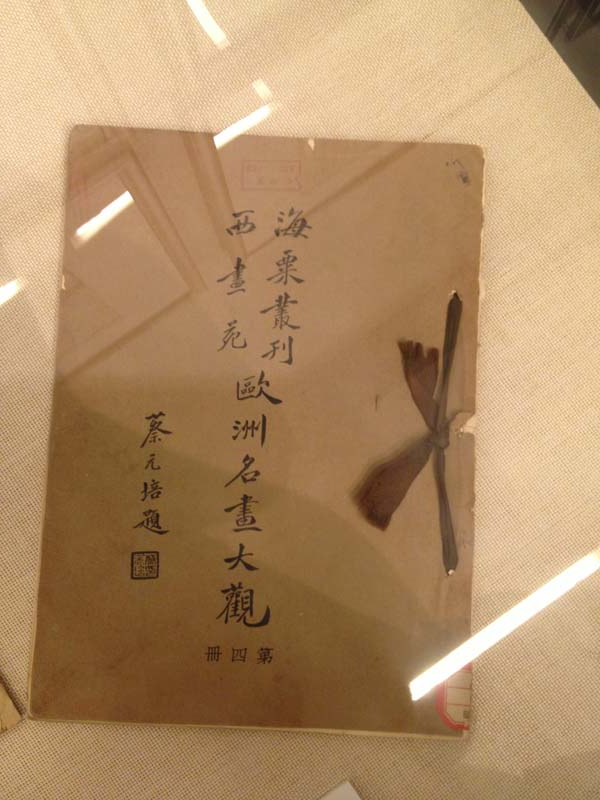 海粟叢刊
西畫苑
歐洲名畫大觀
第四冊
蔡元培題